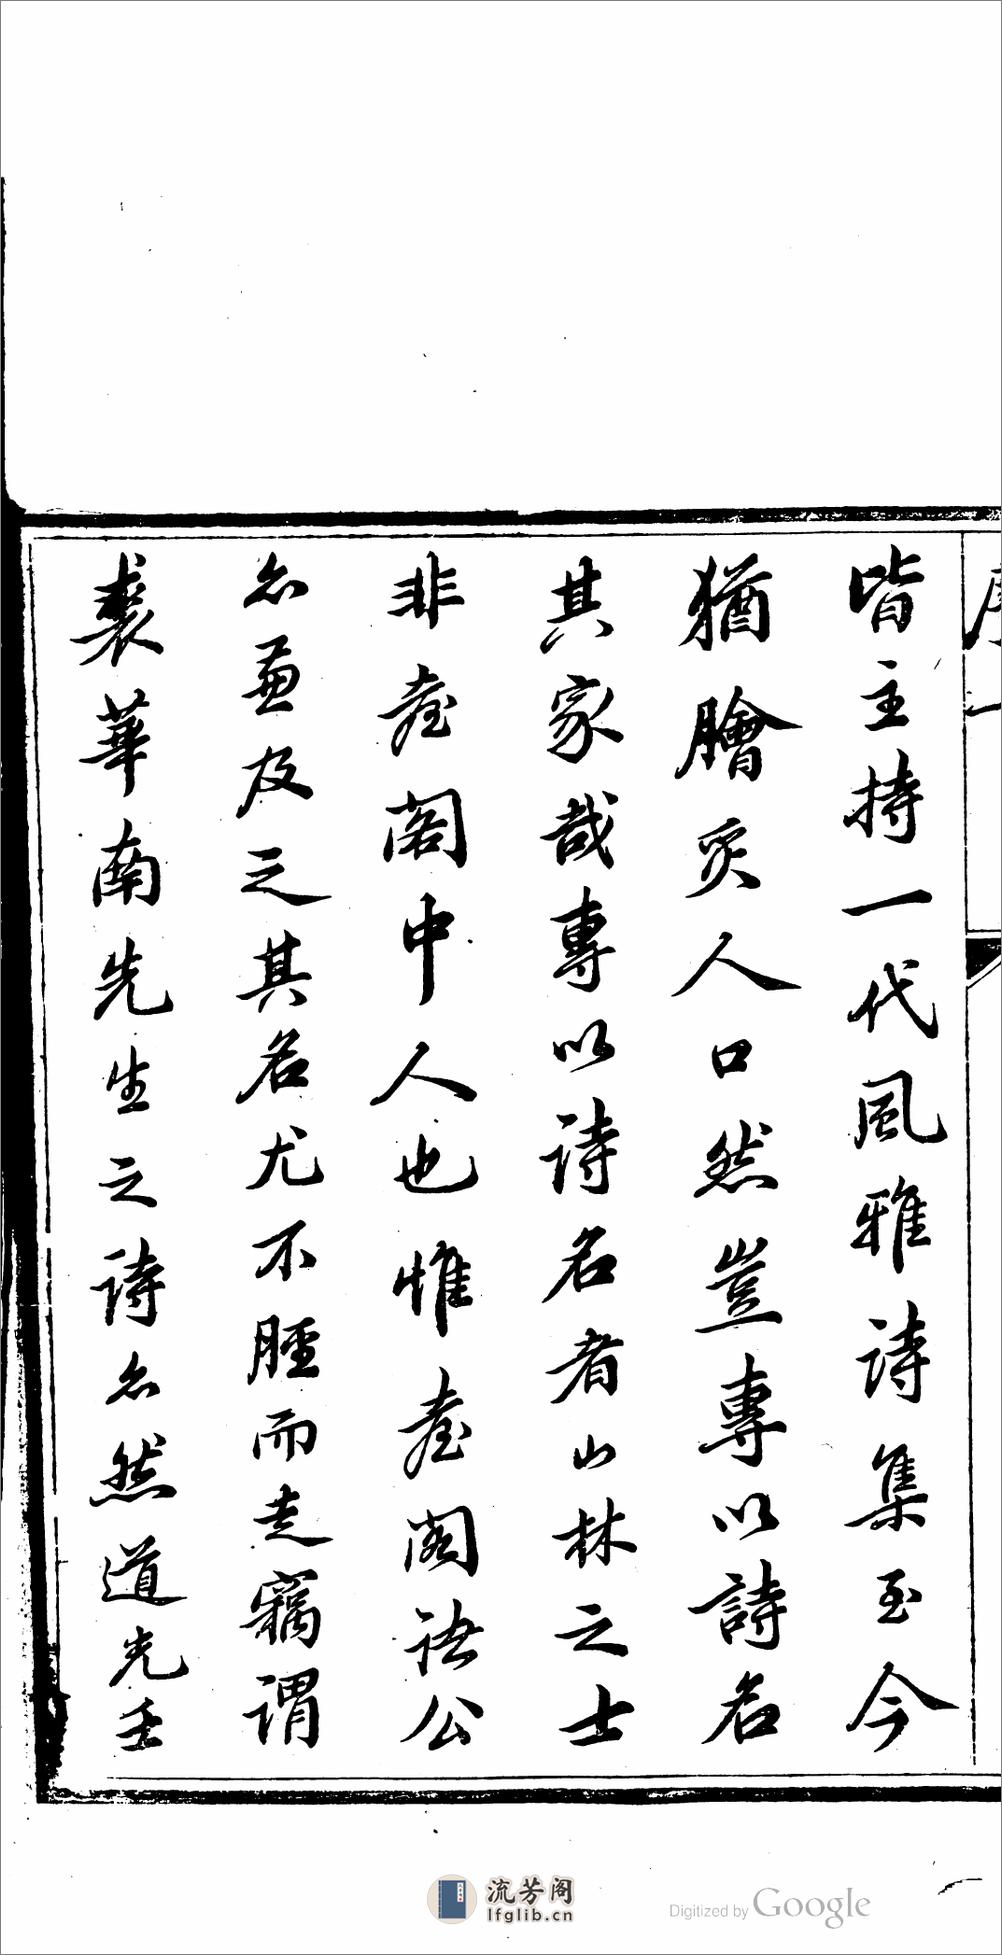 皆主持一代風雅詩集至今
猶膾炙人口然豈專以詩名
其家哉專以詩名者山林之士
非臺閣中人也惟臺閣諸公
亦兼及之其名尤不脛而走竊謂
裘華南先生之詩亦然道光壬
序
一
流芳阁
lfglib.cn
Digitized by Google